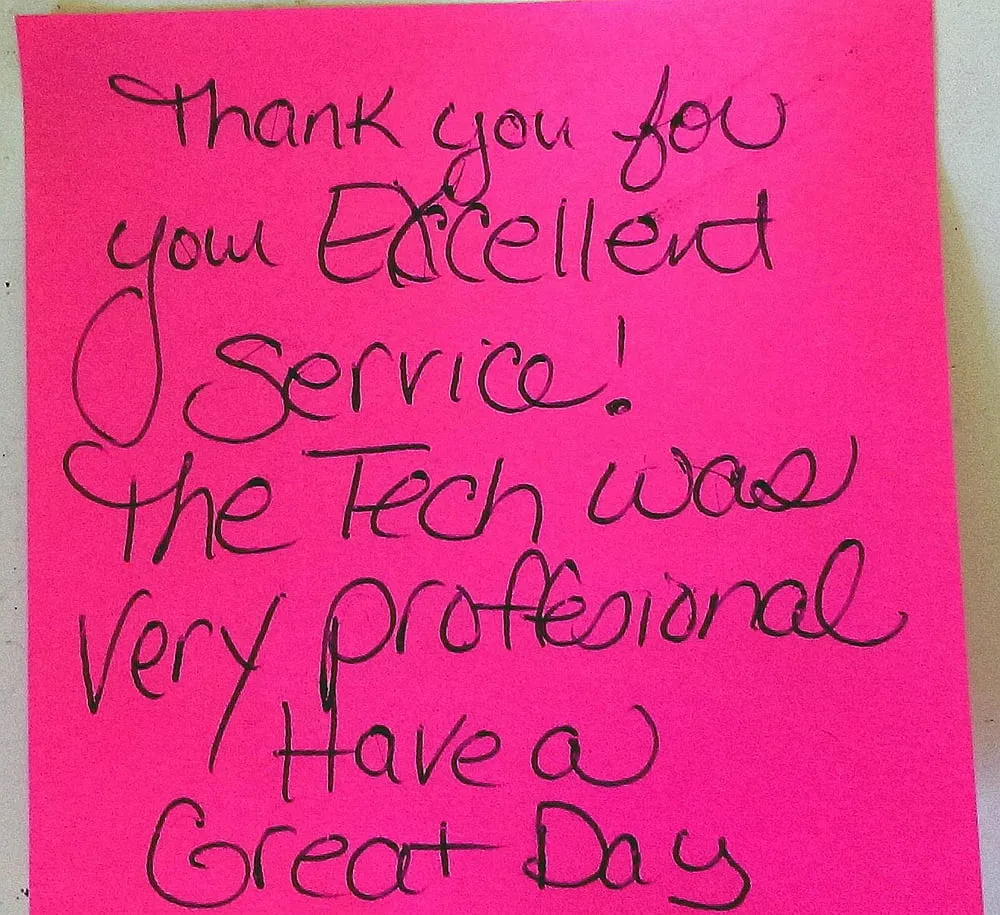 Thank you for
your Excellent
Service!
The Tech was
very proffesional
Have a
Great Day